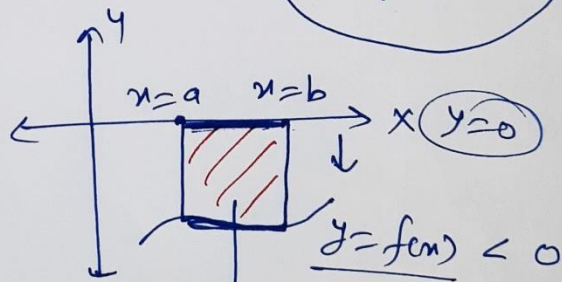 y
x=a x=b
x y=0
y=f(x) < 0